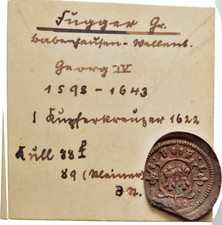 Fugger Gr.
Babenhausen-Wellenb.
Georg IV
1598-1643
1 Kupferkreuzer 1622
Kull 88 f
89 (kleiner)